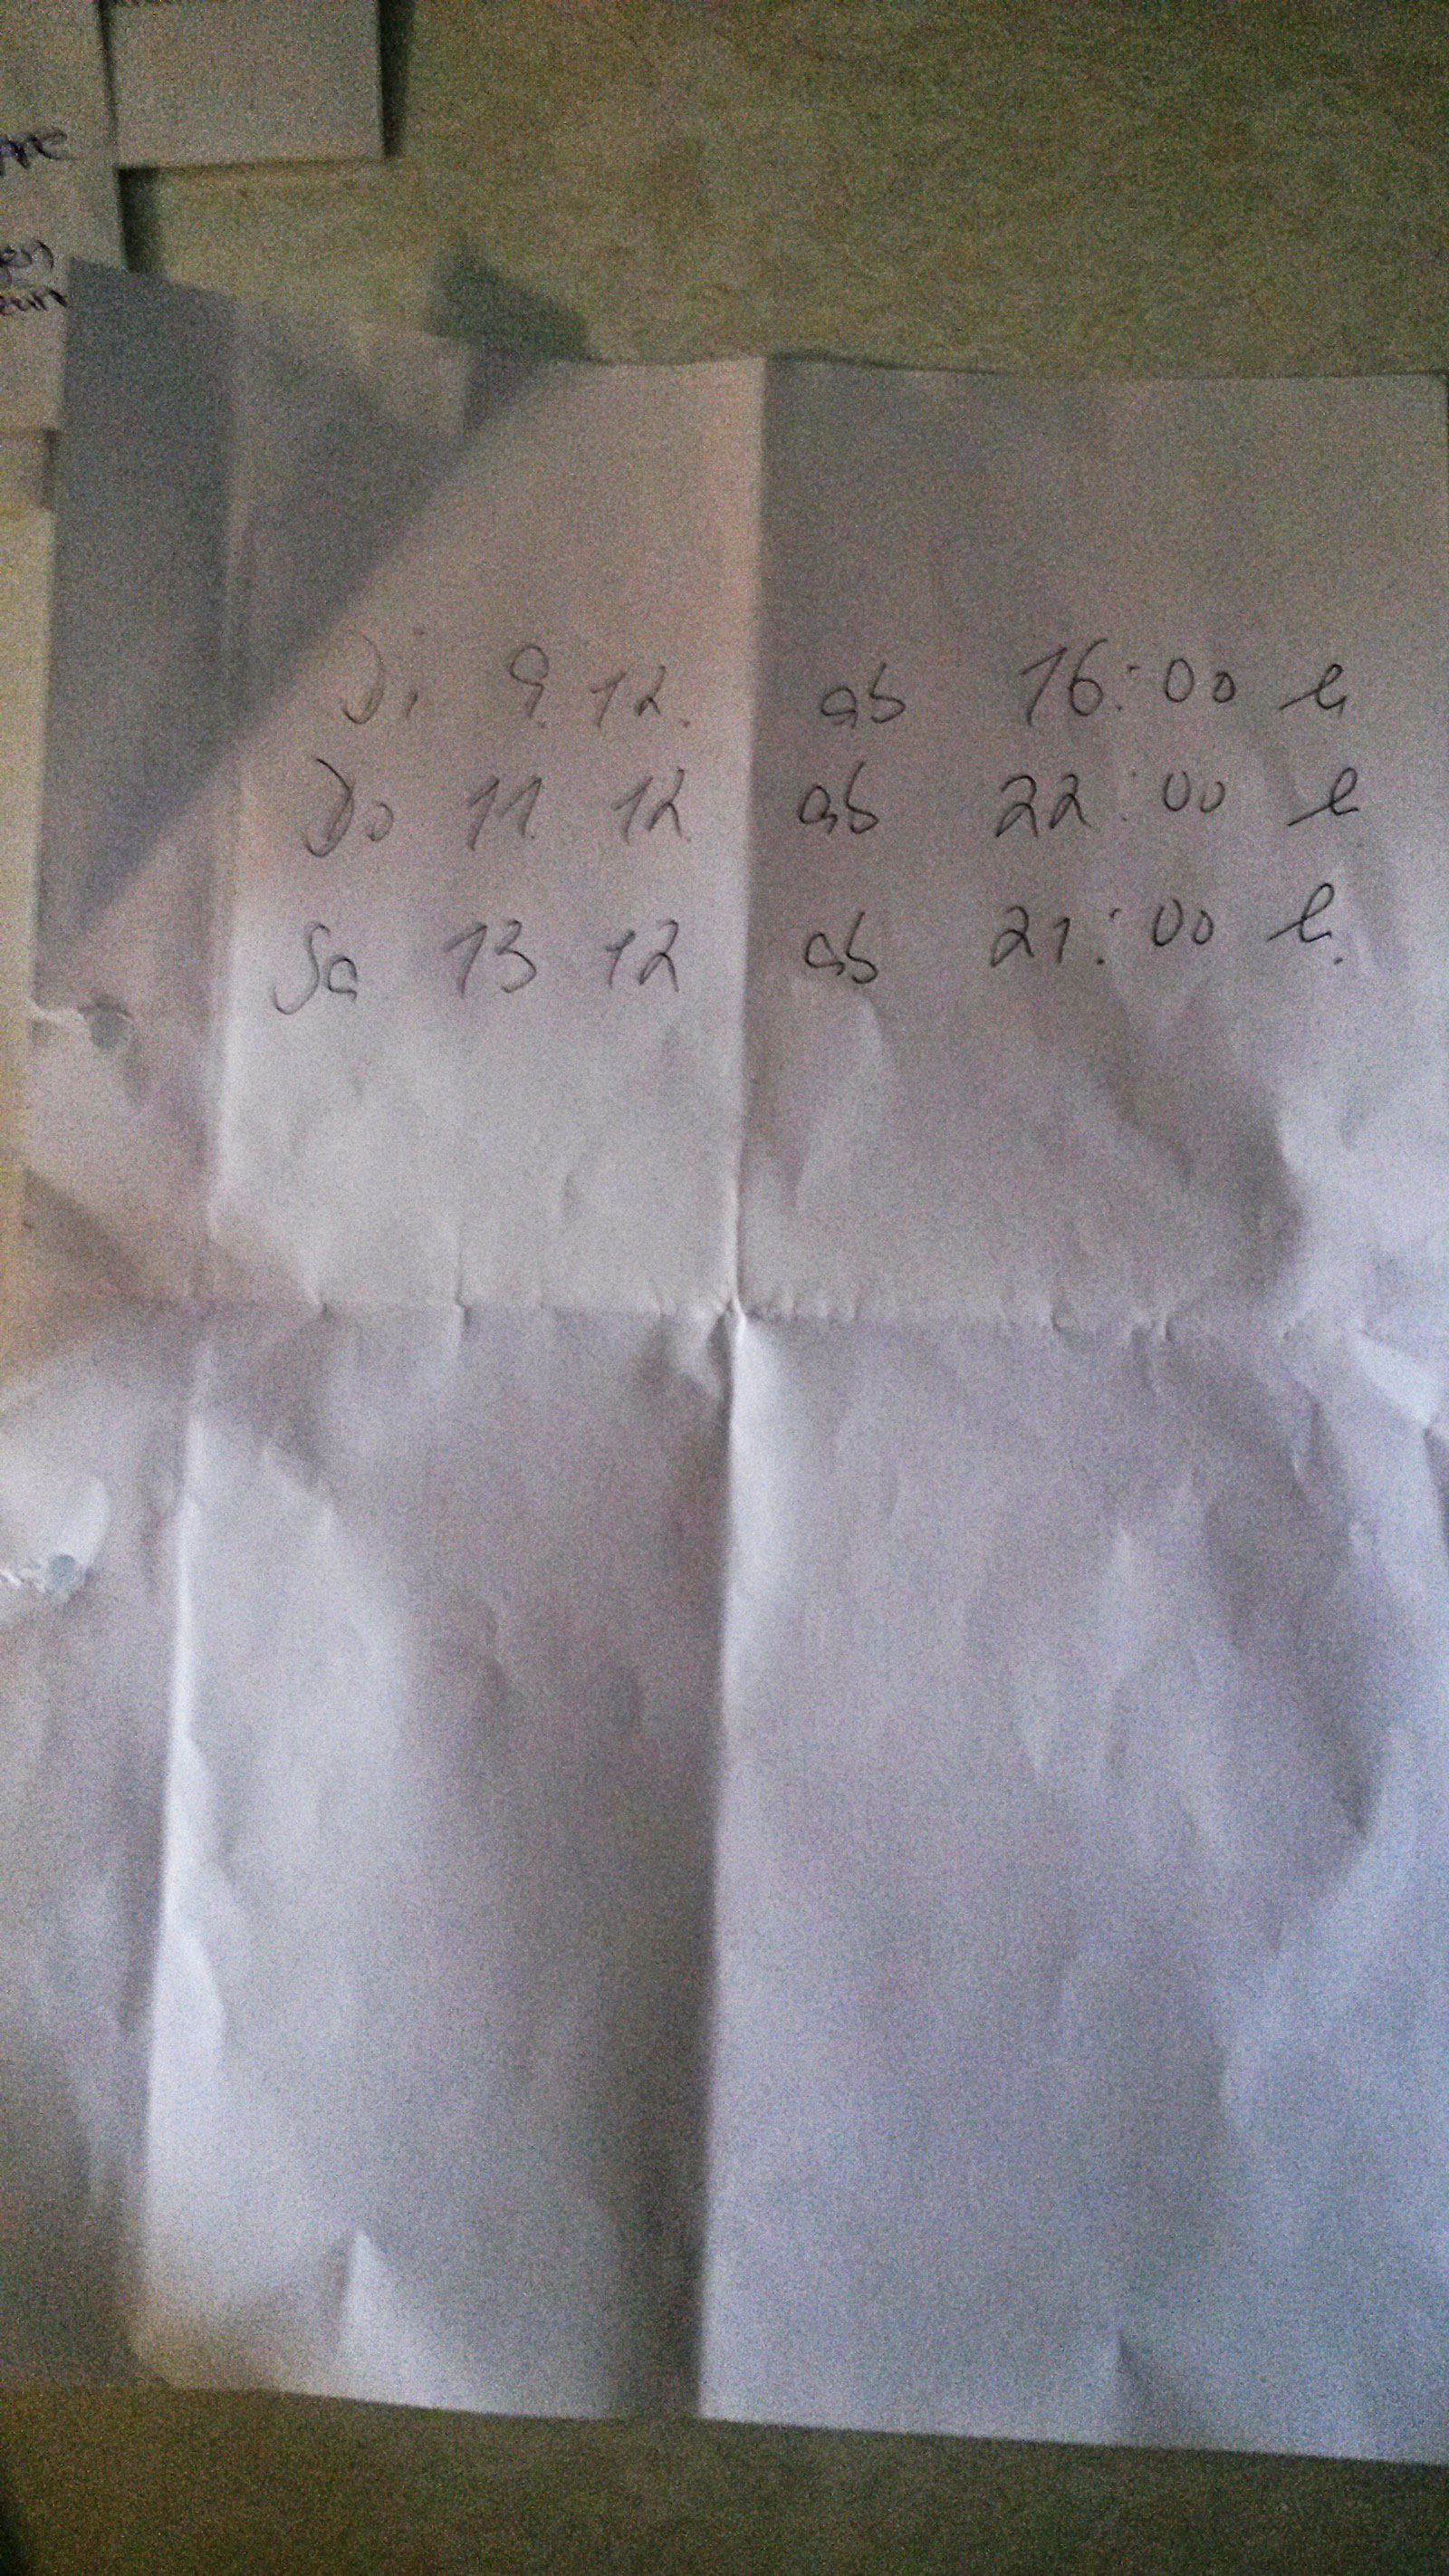 Di 9. 12. ab 16:00 h
Do 11. 12. ab 22:00 h
Sa 13 12 ab 21:00 h.